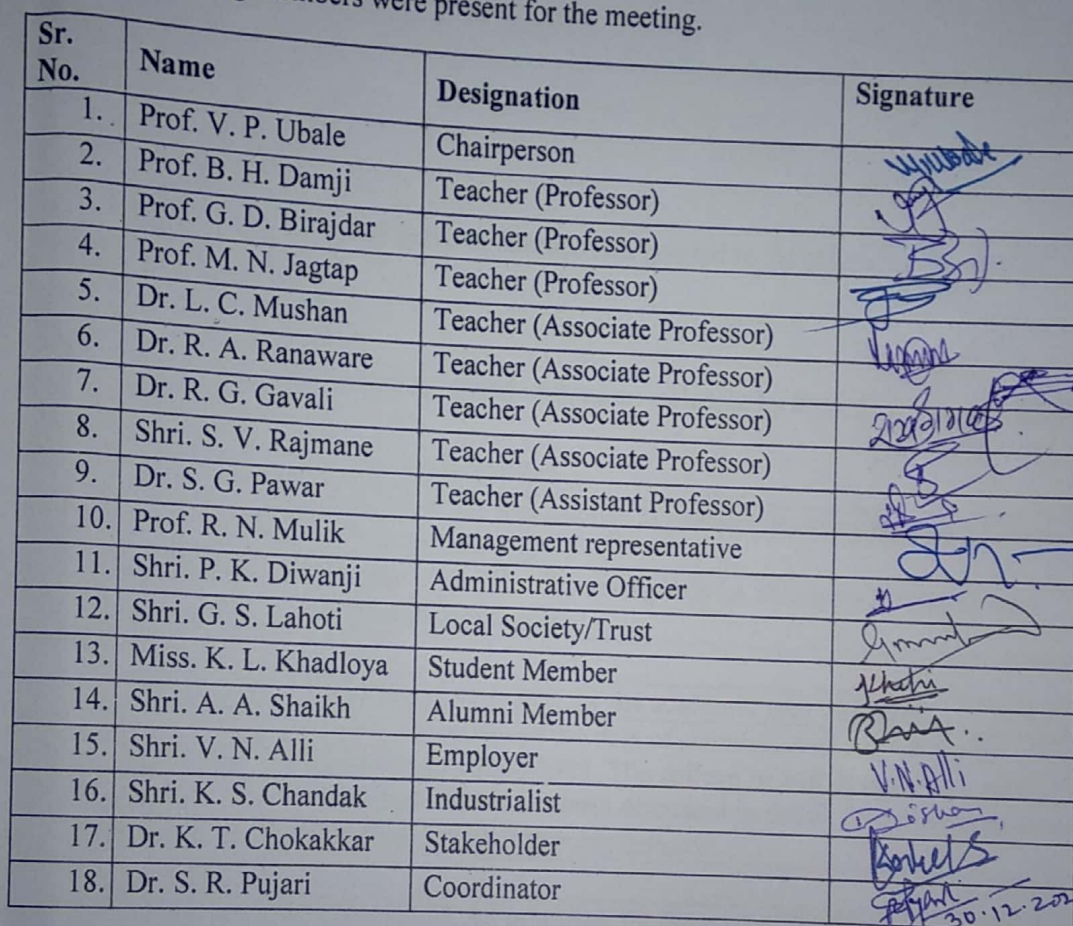 were present for the meeting.
Sr. No. Name Designation Signature
1. Prof. V. P. Ubale Chairperson
2. Prof. B. H. Damji Teacher (Professor)
3. Prof. G. D. Birajdar Teacher (Professor)
4. Prof. M. N. Jagtap Teacher (Professor)
5. Dr. L. C. Mushan Teacher (Associate Professor)
6. Dr. R. A. Ranaware Teacher (Associate Professor)
7. Dr. R. G. Gavali Teacher (Associate Professor)
8. Shri. S. V. Rajmane Teacher (Associate Professor)
9. Dr. S. G. Pawar Teacher (Assistant Professor)
10. Prof. R. N. Mulik Management representative
11. Shri. P. K. Diwanji Administrative Officer
12. Shri. G. S. Lahoti Local Society/Trust
13. Miss. K. L. Khadloya Student Member
14. Shri. A. A. Shaikh Alumni Member
15. Shri. V. N. Alli Employer V.N.Alli
16. Shri. K. S. Chandak Industrialist
17. Dr. K. T. Chokakkar Stakeholder
18. Dr. S. R. Pujari Coordinator
30.12.202